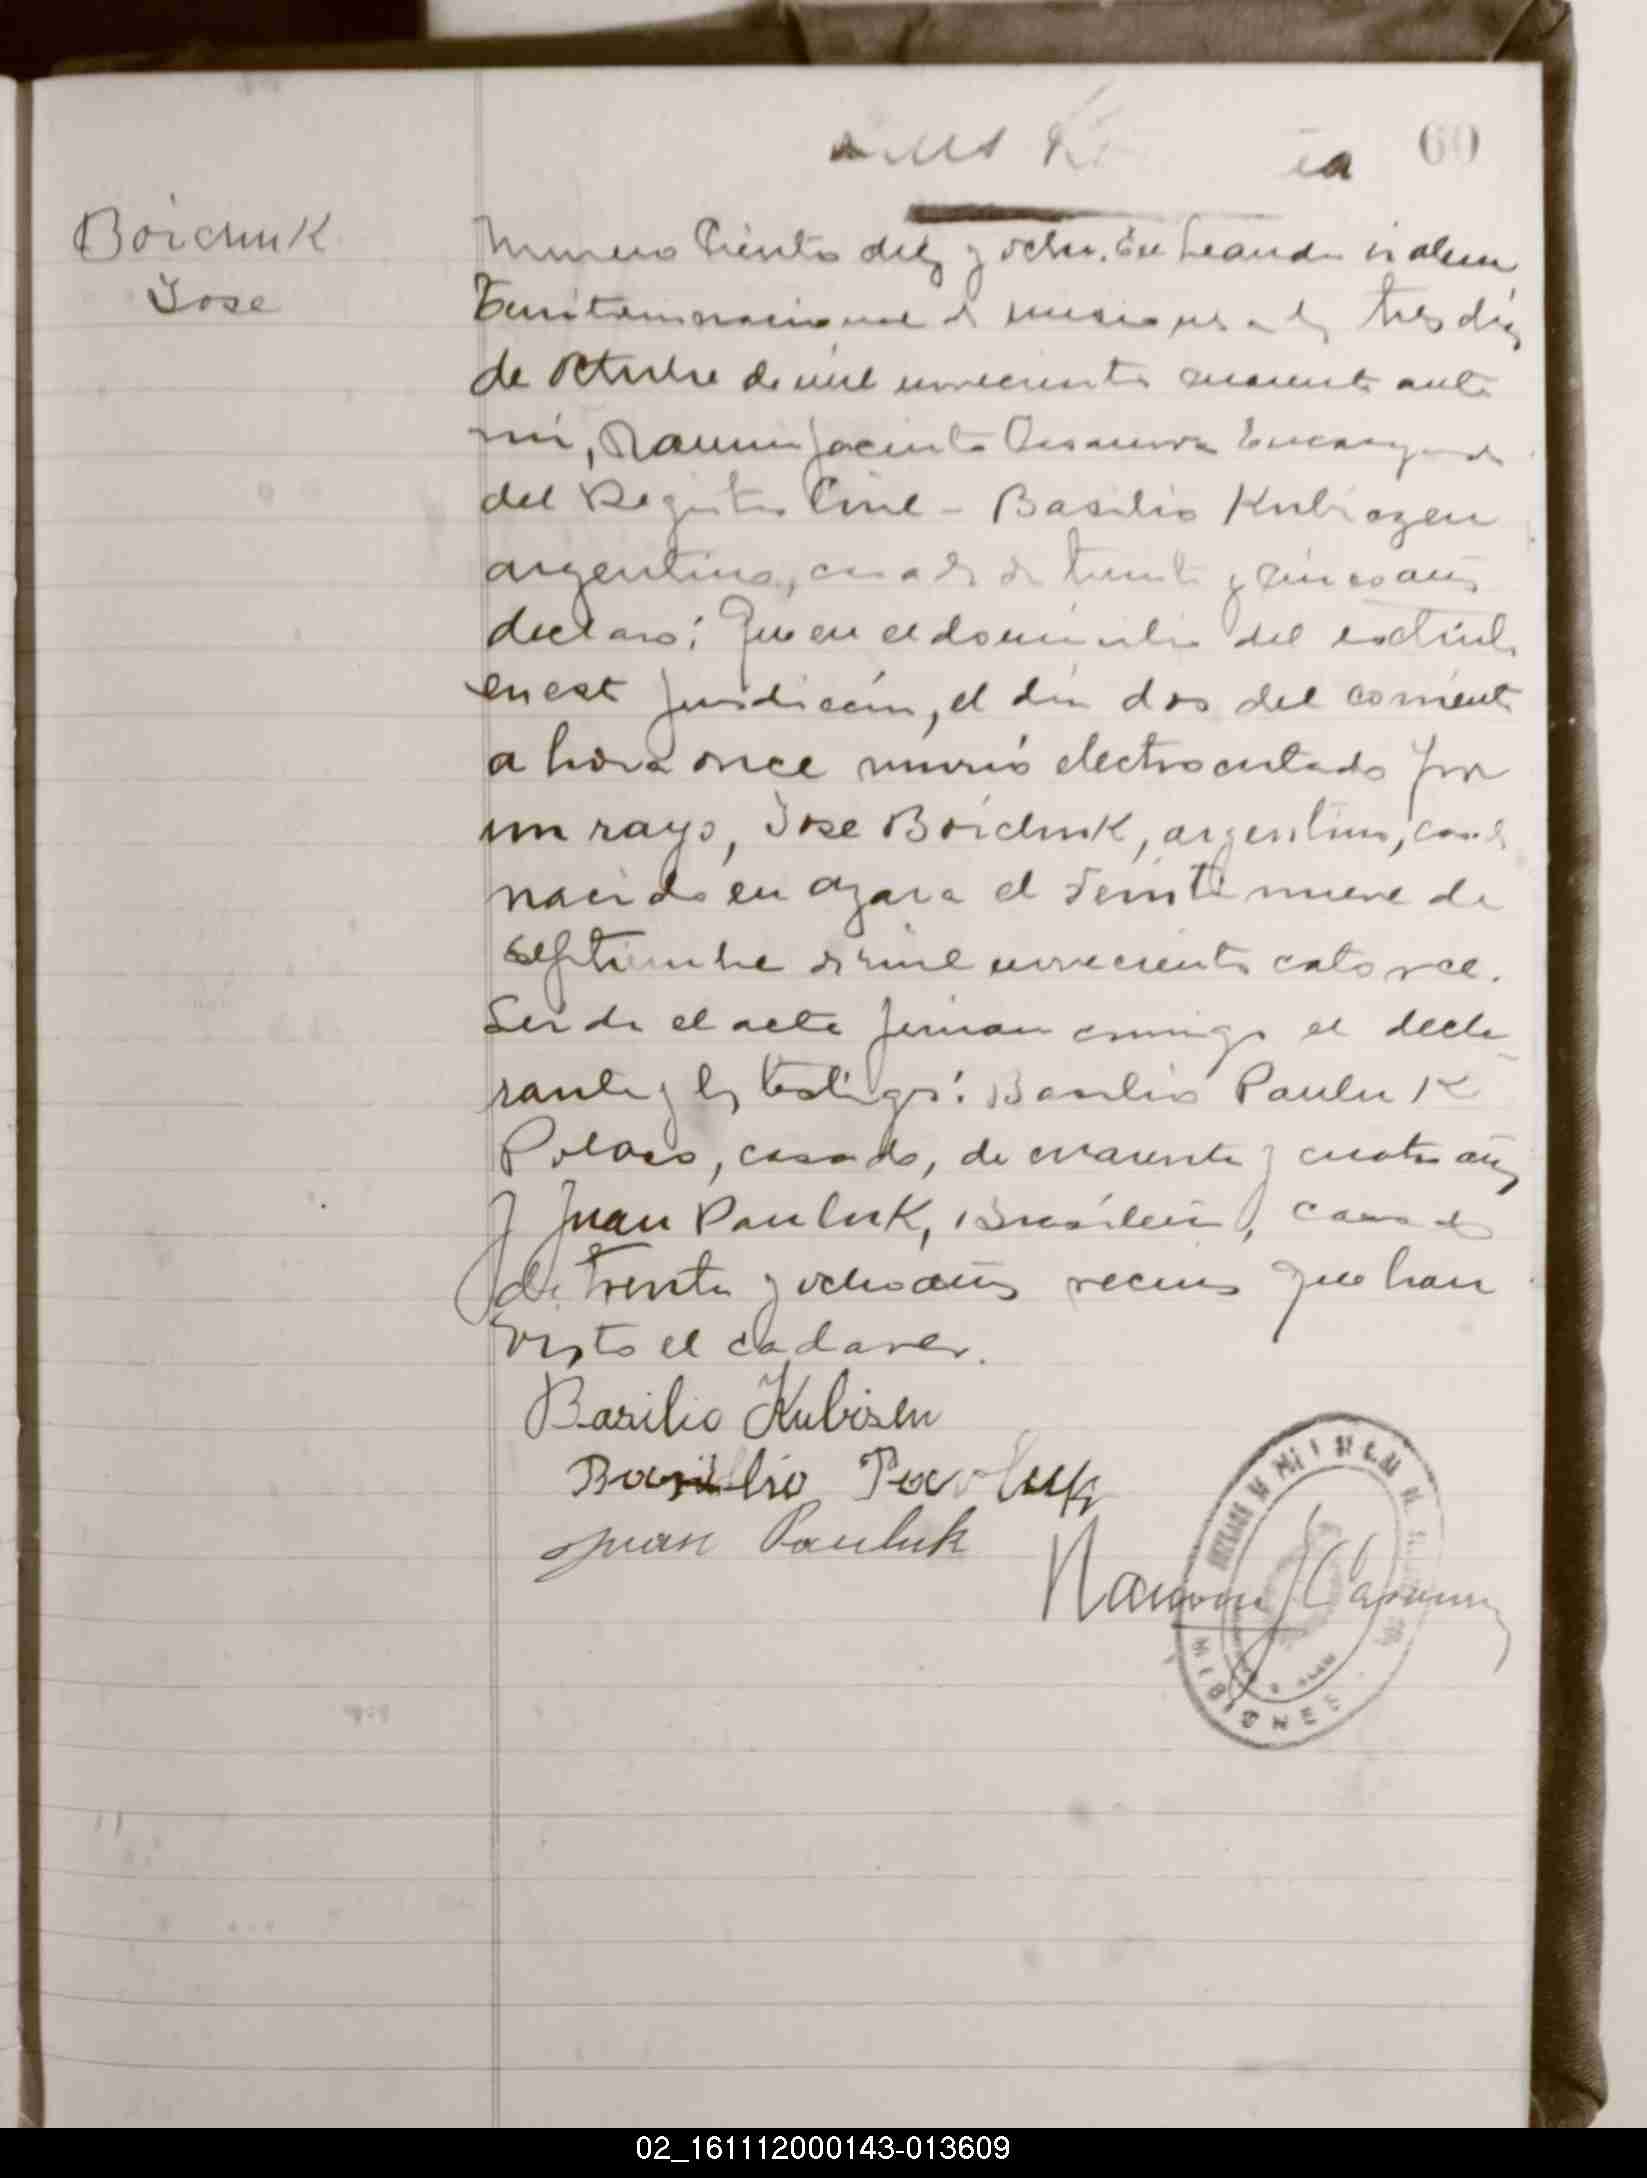 60
Boichuk
Jose
Numero Ciento diez y ocho. En Leandro N Alem
Territorio nacional de Misiones a los tres dias
de Octubre de mil novecientos cuarenta ante
mi, Ramon Jacinto Casanova Encargado
del Registro Civil - Basilio Kubiszen
argentino, casado de treinta y cinco años
declaró: Que en el domicilio del extinto
en esta jurisdicción, el dia dos del corriente
a hora once murió electrocutado por
un rayo, Jose Boichuk, argentino, casado
nacido en Azara el veinte nueve de
septiembre de mil novecientos catorce.
Leida el acta firman conmigo el decla
rante y los testigos: Basilio Pauluk
Polaco, casado, de cuarenta y cuatro años
y Juan Pauluk, Brasilero, casado
de treinta y ocho años vecinos que han
visto el cadaver.
Basilio Kubisen
Basilio Pavluk
Juan Pauluk
Ramon J Casanova
MISIONES
02_161112000143-013609